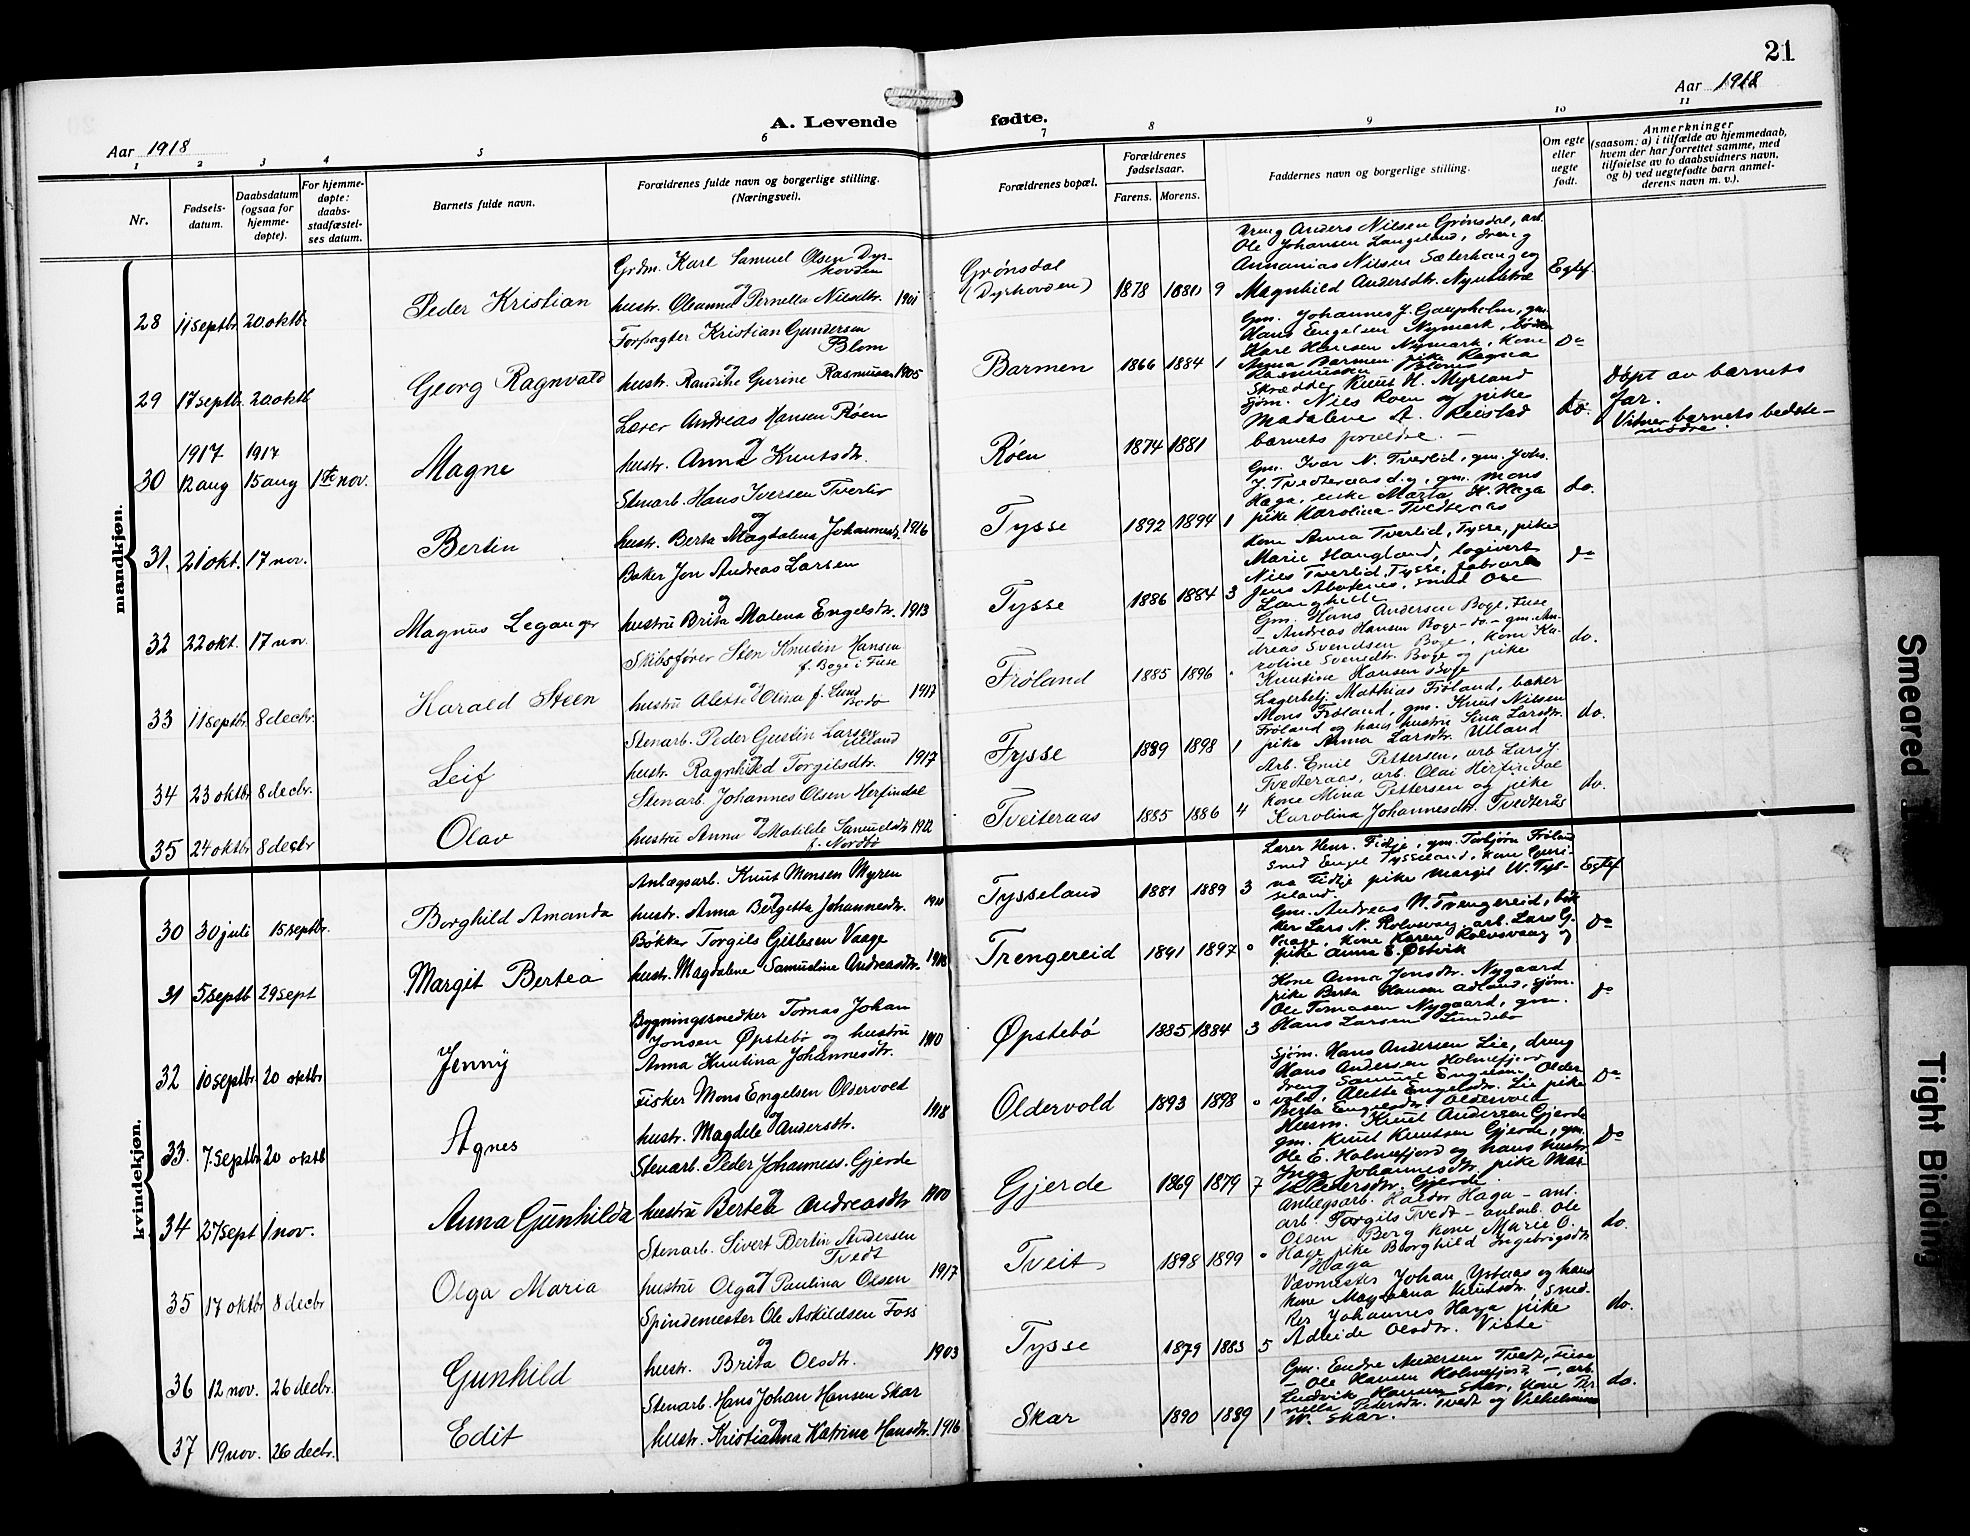 21
Aar 1918
Aar 1918
A. Levende fødte.
1 2 3 4 5 6 7 8 9 10 11
Nr.
Fødsels-
datum.
Daabsdatum
(ogsaa for
hjemme-
døpte).
For hjemme-
døpte:
daabs-
stadfæstel-
ses datum.
Barnets fulde navn.
Forældrenes fulde navn og borgerlige stilling.
(Næringsvei).
Forældrenes bopæl.
Forældrenes
fødselsaar.
Farens. Morens.
Faddernes navn og borgerlige stilling.
Om egte
eller
uegte
født.
Anmerkninger
(saasom: a) i tilfælde av hjemmedaab,
hvem der har forrettet samme, med
tilføielse av to daabsvidners navn,
og b) ved uegtefødte barn anmel-
derens navn m. v.).
mandkjøn.
28 11 septbr. 20. oktbr. Peder Kristian
Grdm. Karl Samuel Olsen Dyr-
hovden
og
hustr. Olianna Pernella Nilsdtr. 1901
Grønsdal
(Dyrhovden) 1878 1880 9
Dreng Anders Nilsen Grønsdal, arb.
Ole Johansen Langeland, dreng
Annanias Nilsen Sæterhaug og
Magnhild Andersdtr.
Egtef.
29 17 septbr. 20 oktb Georg Ragnvald
Forpagter Kristian Gundersen
Blom
og
hustr. Gurine Rasmussen 1905
Barmen 1866 1884 1
Gm. Johannes J. Gaupholm, gm.
Hans Engelsen Nymark, bødker
Karl Hansen Nymark, kone
Anna Barmen, pike Ragna
Rasmussen
Do
30 1917 12 aug 1917 15 aug 1ste nov. Magne
Lærer Andreas Hansen Røen
og
hustr. Anna Knutsdtr.
Røen 1874 1881
Skrædder Knut H. Myrland
sjøm. Nils Roen og pike
Madalene A. Reistad
barnets forældre. –
do.
døpt av barnets
far.
Vidner barnets bedste-
mødre.
31. 21 okt. 17 nov. Bertin
Stenarb. Hans Iversen Tverlid
og
hustr. Berta Magdalena Johannesdtr. 1916
Tysse 1892 1894 1
Gm. Ivar N. Tverlid, gm. Johs.
J. Tvedteraas d.y., gm. Mons
Haga, enke Marta K. Haga
pike Karolina Tvedteraas
do.
32 22 okt. 17 nov. Magnus Leganger
Baker Jon Andreas Larsen
og
hustru Brita Malena Engelsdtr. 1913
Tysse 1886 1884 3
Kone Anna Tverlid, Tysse, pike
Marie Haugland, logivert
Nils Tverlid, Tysse, fabrarb.
Jens, smed Ole
Langhelle
do
33 11 septbr. 8 decbr. Harald Steen
Skibsfører Sten Knutsen Hansen
f. Boge i Fuse
og
hustru Alette Olina f. Lund
Bodø 1917
Frøland 1885 1896
Gm. Hans Andersen Boge, Fuse
– Andreas Hansen Boge – do – gm. An-
dreas Svendsen Boge, kone Ka-
roline Svendsdtr. Boge og pike
Knutine Hansen Boge
do.
34 23 oktbr 8 decbr. Leif
Stenarb. Peder Gustin Larsen
Ulland
og
hustr. Ragnhild Torgilsdtr. 1917
Tysse 1889 1898 1
Lagerbetj. Mathias Frøland, baker
Mons Frøland, gm. Knut Nilsen
Frøland og hans hustru Sina Larsdtr.
pike Anna Larsdtr. Ulland
do.
35 24 oktbr 8 decbr Olav
Stenarb. Johannes Olsen Herfindal
og
hustru Anna Matilde Samuelsdtr.
f. Nordbø 1912
Tveiteraas 1885 1886 4
Arb. Emil Pettersen, arb Lars J.
Tvedteraas, arb. Olai Herfindal
kone Mina Pettersen og pike
Karolina Johannesdtr. Tvedterås
do.
kvindekjøn.
30 30 juli 15 septbr. Borghild Amanda
Anlægsarb. Knut Monsen Myren
og
hustr. Anna Bergitta Johannesdtr. 1911
Tysseland 1881 1889 3
Lærer Henr. Fidje, gm. Torbjørn Frøland
smed Engel Tysseland, kone Guri-
na Fidje pike Margit W. Tys-
seland
Egtef.
31 5 septb 29 sept Margit Bertea
Bøkker Torgils Gitlesen Vaage
hustr. Magdalene Samueline Andreasdtr. 1918
Trengereid 1891 1897 0
Gm. Andreas N. Trengereid, bøk-
ker Lars N. Rolvsvaag, arb. Lars G.
Vaage, kone Karen Rolvsvaag og
pike Anna E. Østvik
Do
32 10 septbr. 20 oktbr Jenny
Bygningssnedker Tomas Johan
Jonsen Øpstebø og hustru
Anna Knutina Johannesdtr. 1910
Øpstebø 1885 1884 3
Kone Anna Jonsdtr. Nygaard
pike Berta Hansen Ådland, sjøm.
Ole Tomasen Nygaard, gm.
Hans Larsen Lundebø
Do
33. 7. septbr 20 oktb Agnes
Fisker Mons Engelsen Oldervold
og
hustr. Magdele Andersdtr. 1918
Oldervold 1893 1898 0
Sjøm. Hans Andersen Lie, dreng
Hans Andersen Holmefjord
dreng Samuel Engelsen Older-
vold, Alette Engelsdtr. Lie pike
Berta Engelsdtr. Oldervold
Do
34 27 sept 1 nov. Anna Gunhilda
Stenarb. Peder Johanness. Gjerde
og
hustru Bertea Andreasdtr 1900
Gjerde 1869 1879 7
Husm. Knut Andersen Gjerde
gm. Knut Knutsen Gjerde, gm.
Ole E. Holmefjord og hans hustr.
Inga Johannesdtr. pike Mar-
Pedersdtr. Gjerde
Do
35 17 oktbr 8 decbr Olga Maria
Stenarb. Sivert Bertin Andersen
Tvedt
og
hustru Olga Paulina Olsen 1917
Tveit 1898 1899 0
Anlægsarb. Haldor Haga – anl.
arb. Torgils Tvedt – anlarb. Ole
Olsen Berg kone Marie O.
Hage pike Borghild Ingebrigsdtr
Haga
do.
36 12 nov. 26 decbr. Gunhild
Spindemester Ole Askildsen Foss
og
hustr. Brita Olsdtr. 1903
Tysse 1879 1883 5
Vævmester Johan Ystaas og hans
kone Magdalena Knutsdtr, sned-
ker Johannes Haga pike
Adleide Olsdtr. Viste
do.
37 19 nov. 26 decbr. Edit
Stenarb. Hans Johan Hansen Skar
og
hustr. Kristianna Katrine Hansdtr. 1916
Skar 1890 1889 1
Gm. Endre Andersen Tvedt, Fuse
– Ole Hansen Holmefjord –, arb.
Ludvik Hansen Skar, kone Per-
nella Pedersdtr. Tvedt og Vilhelmine
W. Skar.
do.
Smeared
Tight Binding